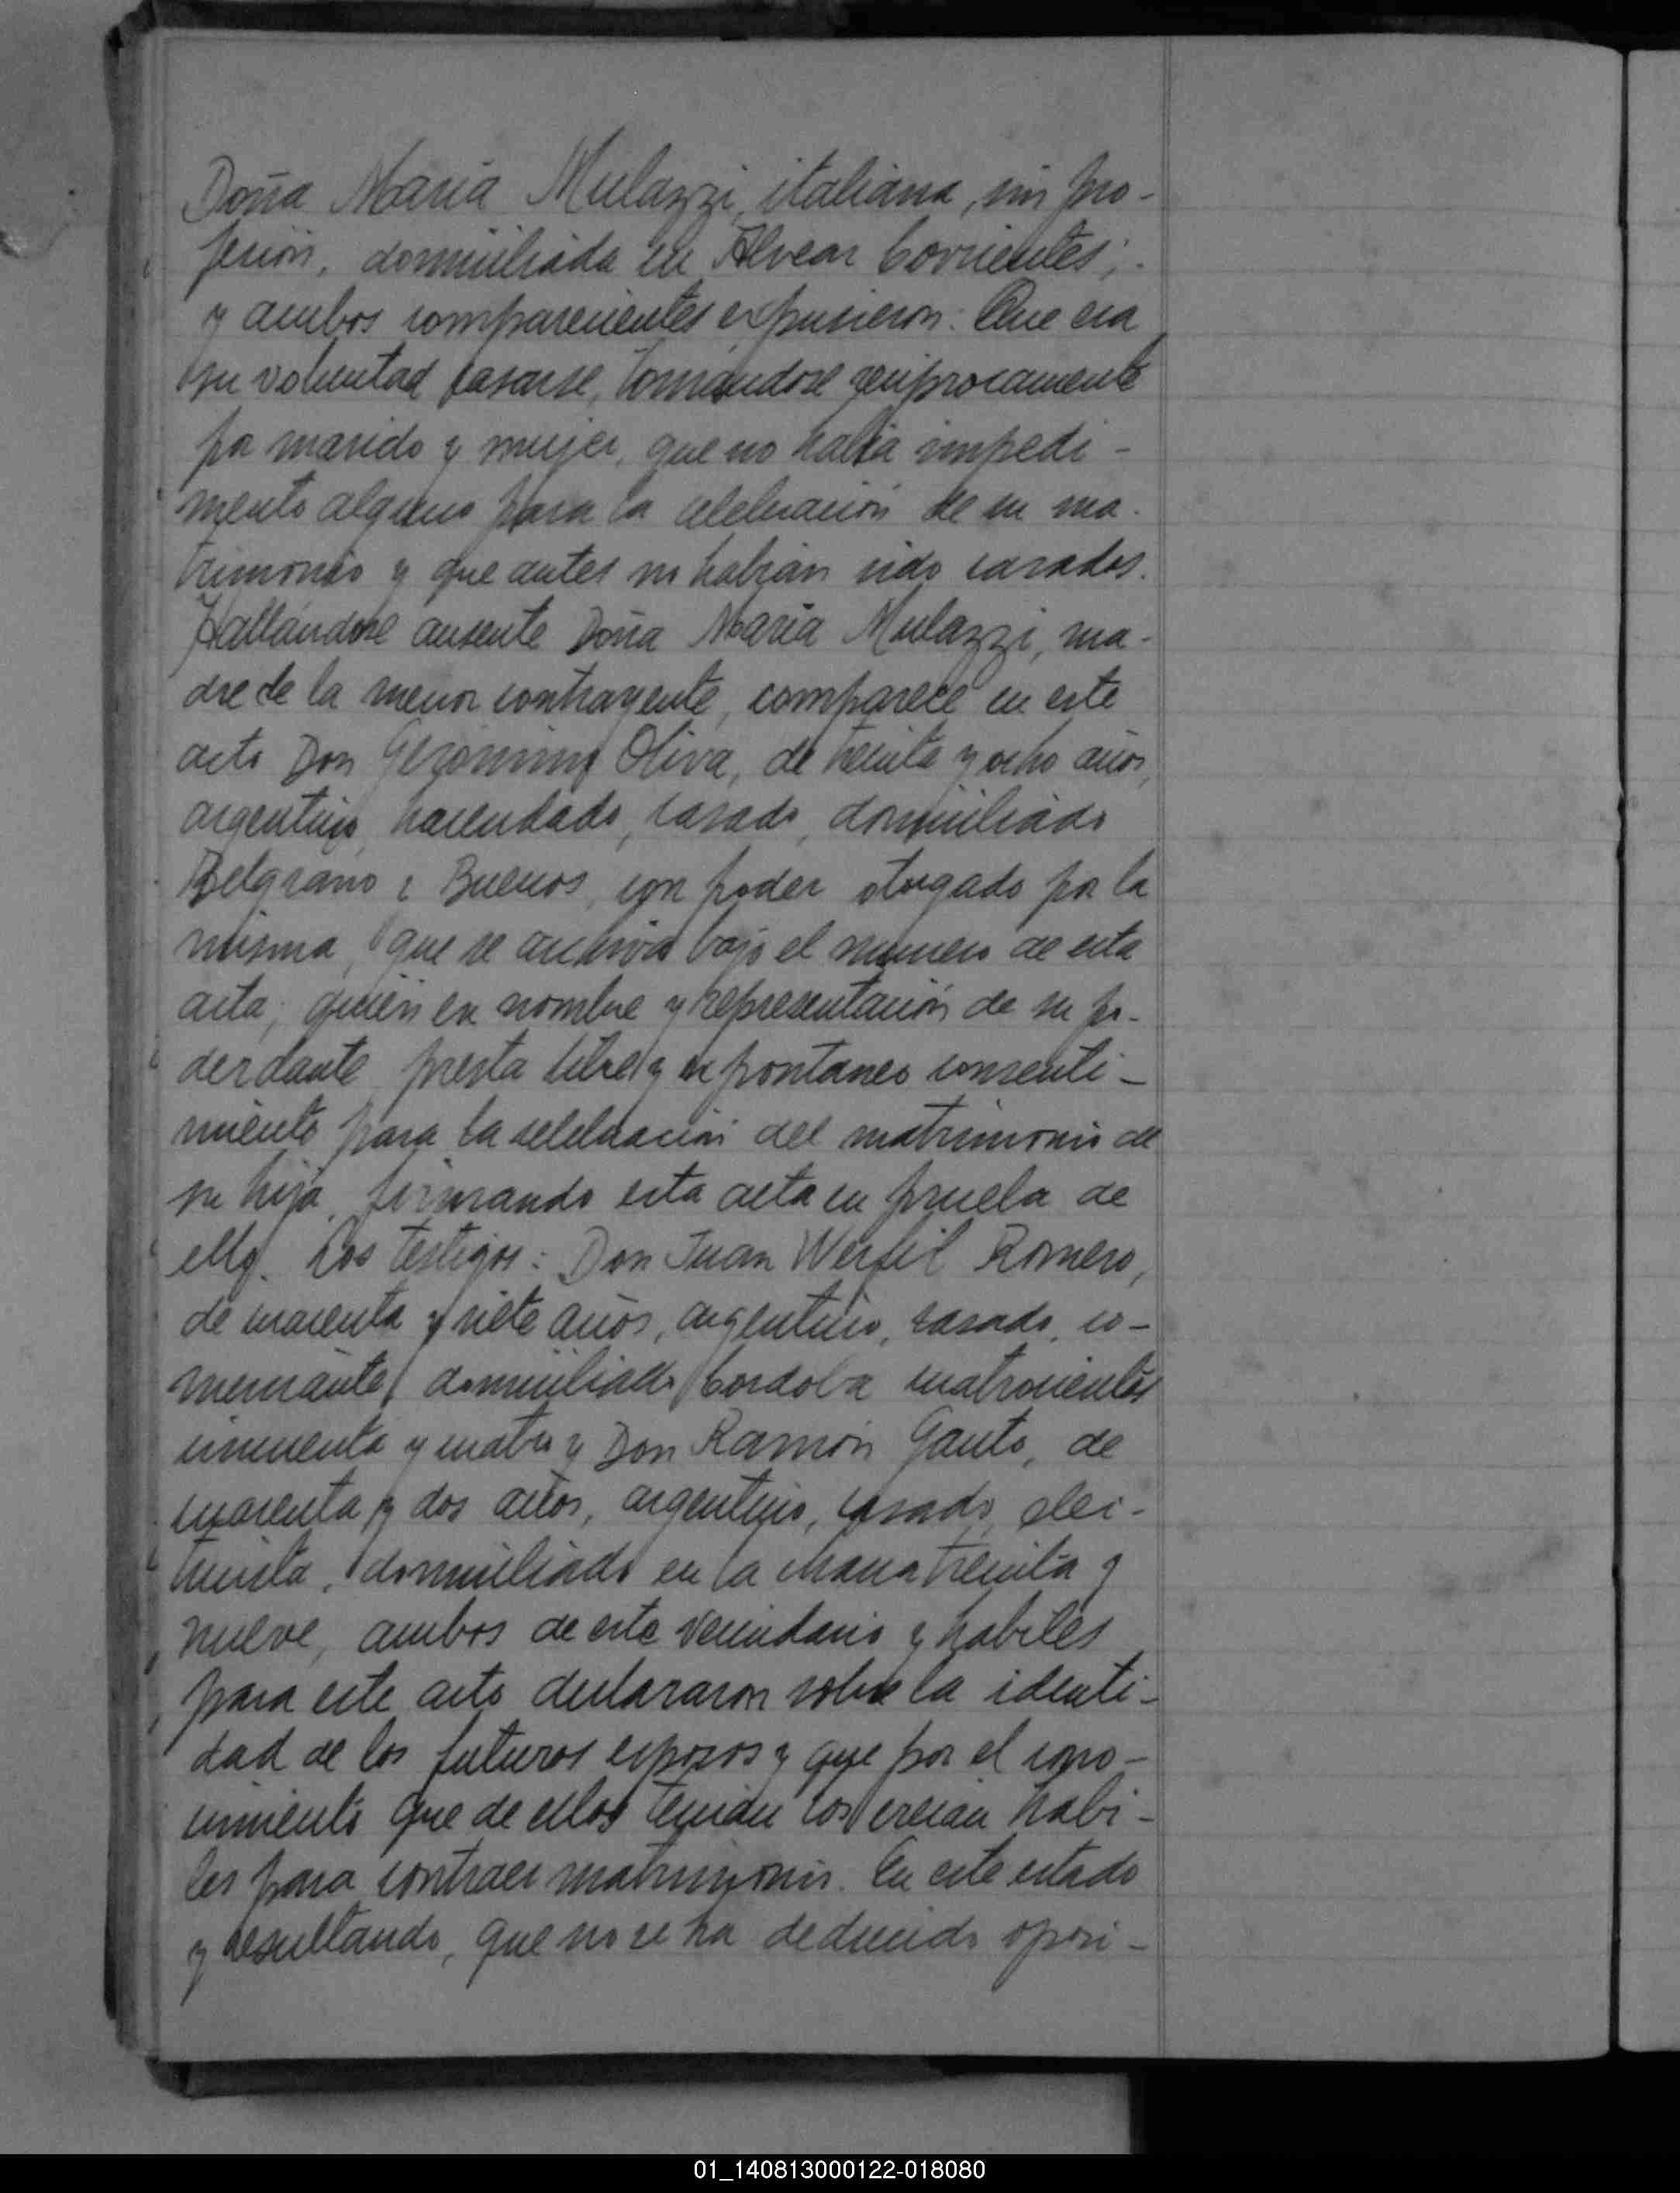 Doña Maria Mulazzi, italiana, sin pro-
fesión, domiciliada en Alvear Corrientes;
y ambos comparecientes expusieron: Que era
su voluntad casarse, tomándose reciprocamente
por marido y mujer, que no habia impedi-
mento alguno para la celebración de su ma-
trimonio y que antes no habian sido casados.
Hallándose ausente Doña Maria Mulazzi, ma-
dre de la menor contrayente, comparece en este
acto Don Geronimo Oliva, de treinta y ocho años,
argentino, hacendado, casado, domiciliado
Belgrano i Buenos, con poder otorgado por la
misma, que se archiva bajo el numero de esta
acta; quien en nombre y representación de su po-
derdante presta libre y espontaneo consenti-
miento para la celebración del matrimonio de
su hija, firmando esta acta en prueba de
ello. Los testigos: Don Juan Werfil Romero,
de cuarenta y siete años, argentino, casado, co-
merciante, domiciliado Cordoba cuatrocientos
cincuenta y cuatro y Don Ramón Gauto, de
cuarenta y dos años, argentino, casado, elec-
tricista, domiciliado en la chacra treinta y
nueve, ambos de este vecindario y habiles
para este acto declararon sobre la identi-
dad de los futuros esposos y que por el cono-
cimiento que de ellos tenian los creian habi-
les para contraer matrimonio. En este estado
y resultando, que no se ha deducido oposi-
01_140813000122-018080